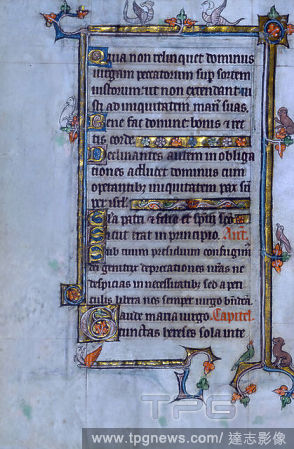 Quia non relinquet dominus
uirgam peccatorum sup sortem
iustorum ut non extendant iu
sti ad iniquitatem man suas.
Bene fac domine bonis & rec
tis corde
Declinantes autem in obliga
tiones adducet dominus cum
operantibz iniquitatem pax sup
isrl.
Gla patri & filio et spui sco
Sicut erat in principio. Ant.
Sub tuum presidium confugim
dei genitrix deprecationes nras ne
despicias in necessitatibz sed a peri
culis libera nos semper uirgo bndca.
Gaude maria uirgo. Capitel.
cunctas hereses sola inte
TPG
www.tpgnews.com / 達志影像